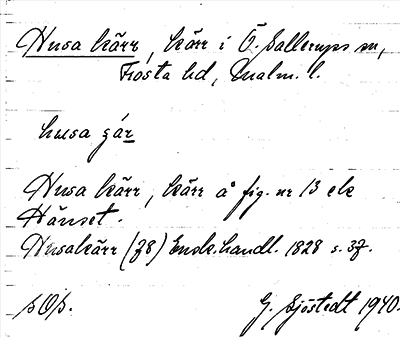 Husa kärr, kärr i Ö. Sallerups sn,
Frosta hd, Malm. l.
husa çär
Husa kärr, kärr å fig. nr 13 ele
Hänset.
Husakärr (78) Ensk. handl. 1828 s. 37.
sOs.
G. Sjöstedt 1940.